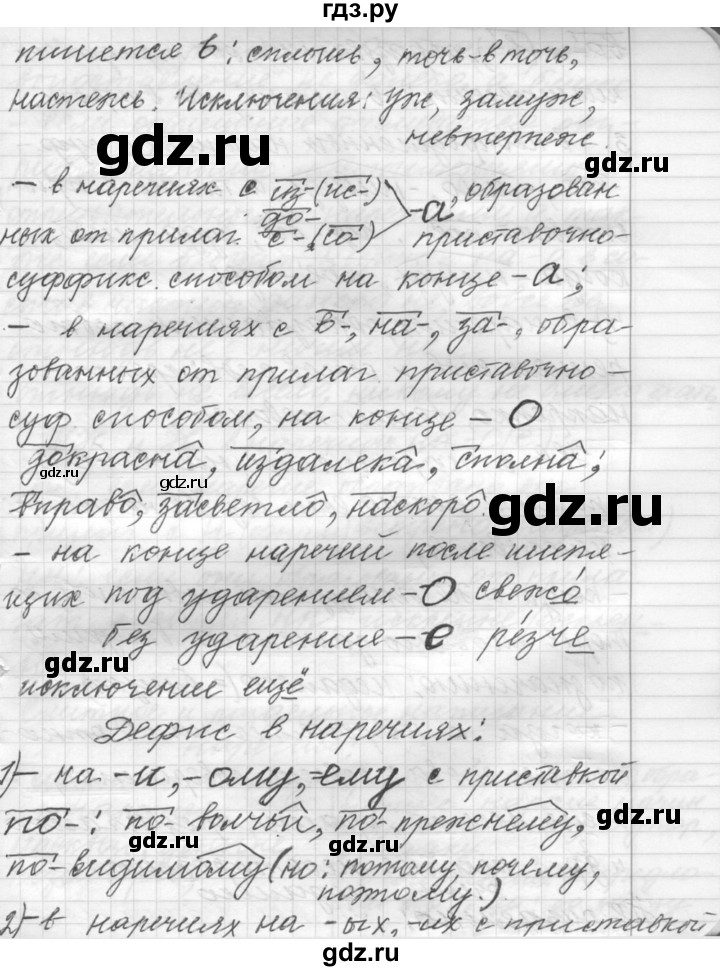 гдз.ру
пишется ь: сплошь, точь-в-точь,
настежь. Исключения: уж, замуж,
невтерпеж.
gdz.ru
gdz.ru
- в наречиях с из-(ис-)
до- -а, образован
ных от прилаг. с-, (со-) приставочно-
суффикс. способом на конце -а;
- в наречиях с в-, на-, за-, обра-
зованных от прилаг. приставочно-
суф. способом, на конце - О
докрасна, издалека, сполна;
gdz.ru
gdz.ru
вправо, засветло, наскоро
gdz.ru
- на конце наречий после шипя-
щих под ударением - О свежо́
без ударения - е ре́зче
gdz.ru
исключении ещё
Дефис в наречиях:
1)- на -и, -ому, -ему с приставкой
gdz.ru
по-: по-волчьи, по-прежнему,
gdz.ru
по-видимому (но: потому, почему,
поэтому.)
2)- в наречиях на -ых, -их с приставкой
gdz.ru